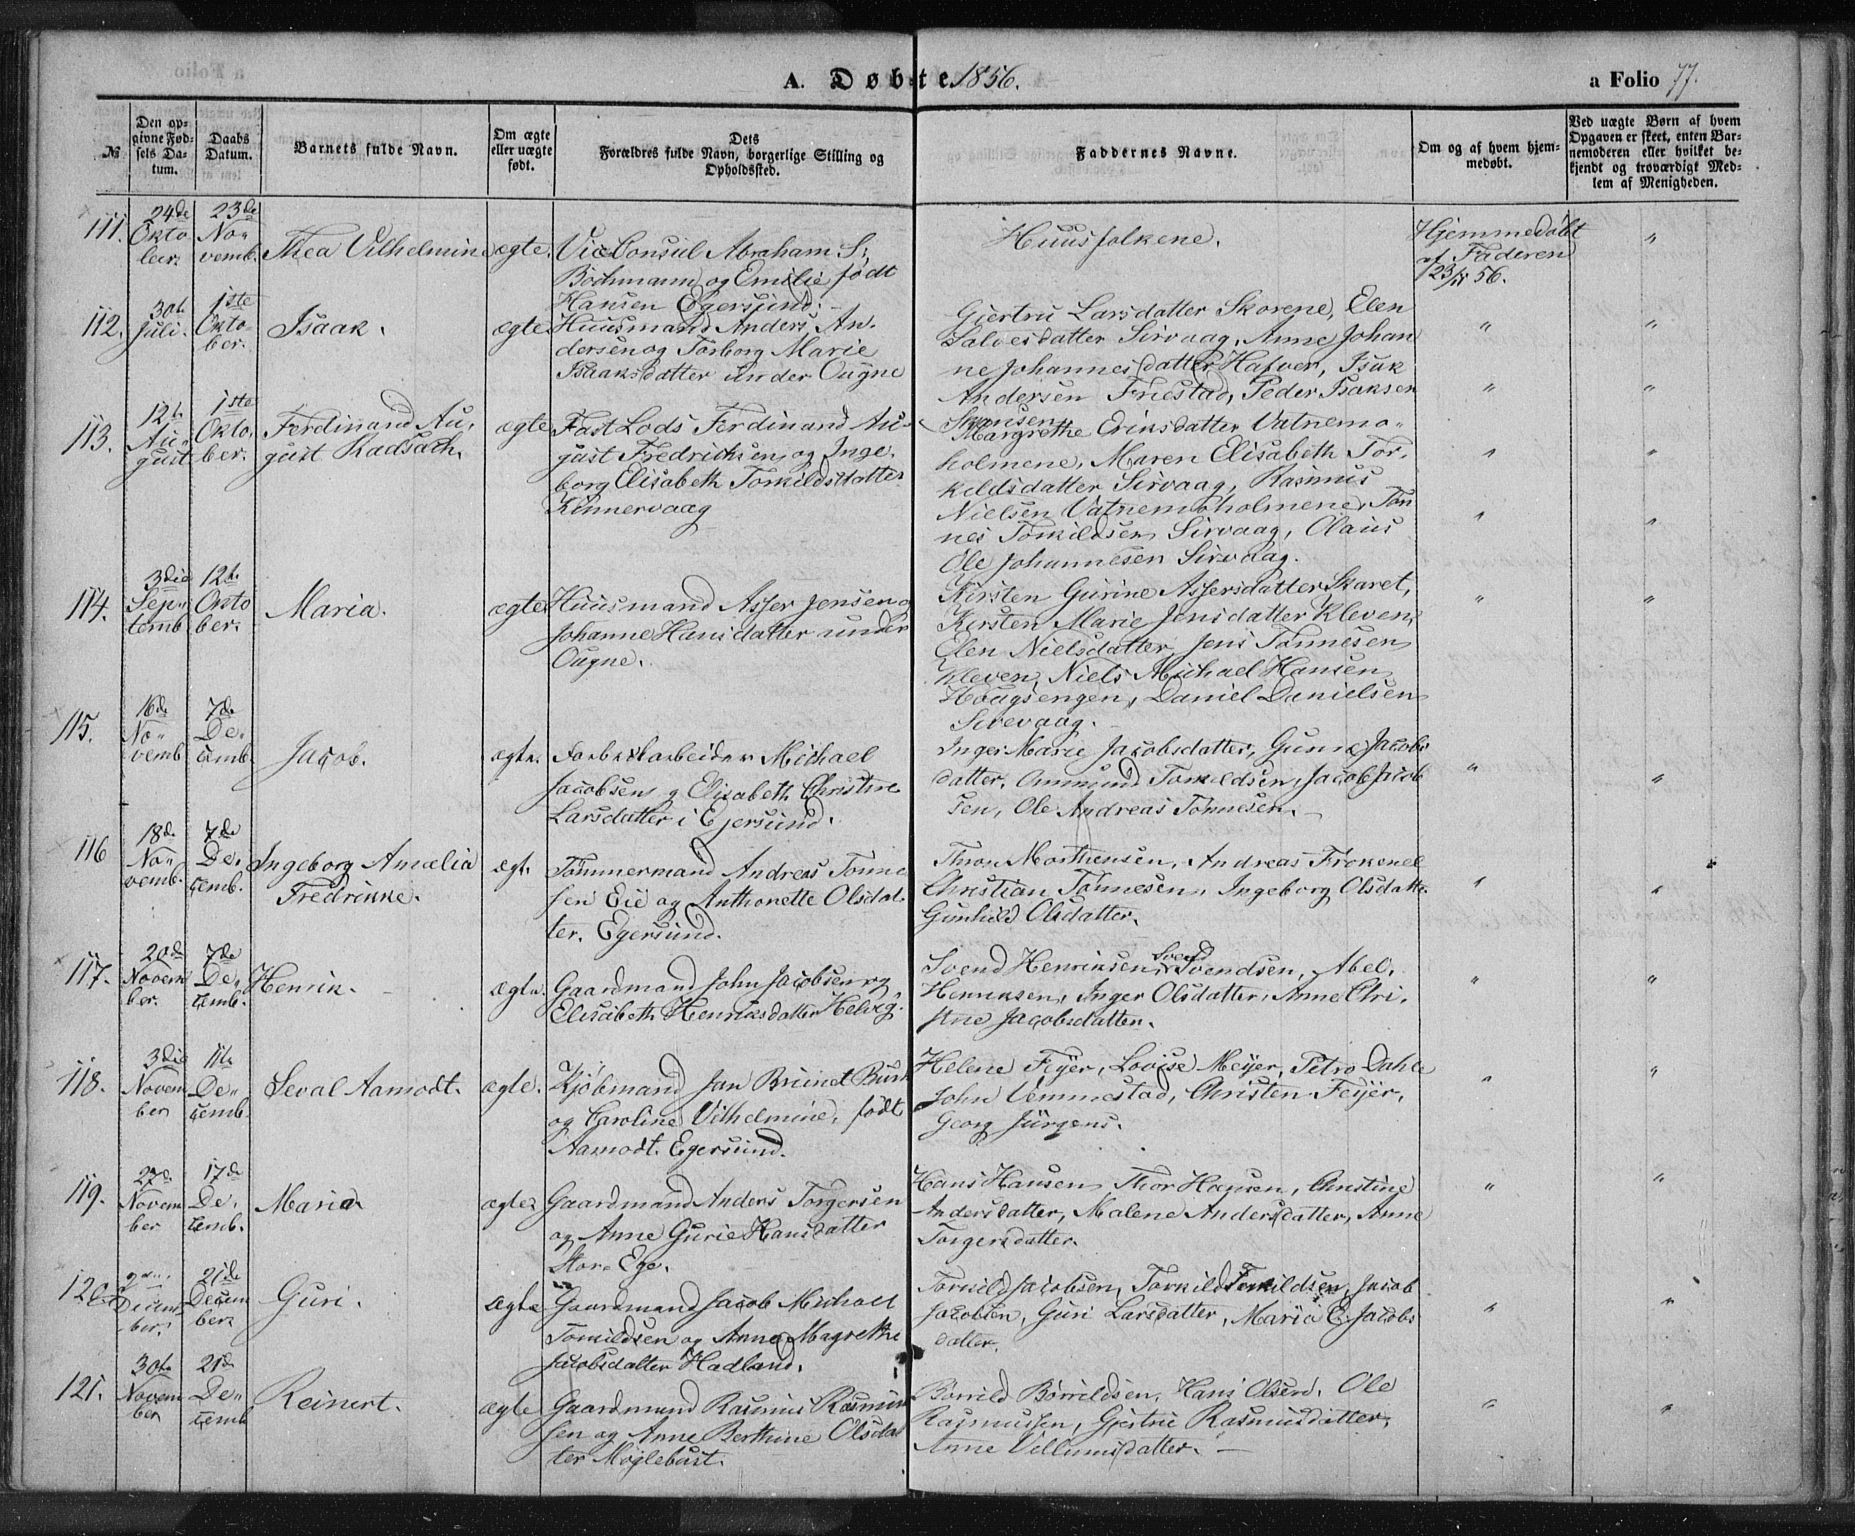 A. Døbte 1856.
a Folio 77.
№
Den opgivne Fødsels Datum.
Daabs Datum.
Barnets fulde Navn.
Om ægte eller uægte født.
Dets Forældres fulde Navn, borgerlige Stilling og Opholdssted.
Faddernes Navne.
Om og af hvem hjemmedøbt.
Ved uægte Børn af hvem Opgaven er skeet, enten Barnemoderen eller hvilket bekjendt og troværdigt Medlem af Menigheden.
111.
24de Oktober.
23de Novemb.
Thea Vilhelmine
ægte.
Vice Consul Abraham S.
Bochmann og Emilie født
Hansen Egersund.
Huusfolkene.
Hjemmedøbt
af Faderen
23/11 56.
112.
30te Juli.
1ste Oktober.
Isaak.
ægte
Huusmand Anders An-
dersen og Torborg Marie
Isaaksdatter under Ougne
Gjertru Larsdatter Skorene, Elen
Salvesdatter Sirvaag, Anne Johan
ne Johannesdatter Hafver, Isak
Andersen Friestad, Peder Isaksen
113.
12te August
1ste Oktober.
Ferdinand Au-
gust Radsach.
ægte
Fast Lods Ferdinand Au-
gust Fredrichsen og Inge-
borg Elisabeth Torkildsdatter
Kinnervaag
Margrethe Eriksdatter Vatnemo-
holmene, Maren Elisabeth Tor-
kildsdatter Sirvaag, Rasmus
Nielsen Vatnemoholmene, Tøn
nes Torkildsen Sirvaag, Olaus
Ole Johannesen Sirvaag.
114.
3die Septemb
12te Oktober.
Maria.
ægte
Huusmand Asser Jensen og
Johanne Hansdatter under
Ougne.
Kirsten Gurine Assersdatter Skaret,
Kirsten Marie Jensdatter Kleven,
Elen Nielsdatter, Jens Tønnesen
Kleven, Niels Michael Hansen
Hougsengen, Daniel Danielsen
Sirevaag.
115.
16de Novemb
7de Decemb.
Jacob.
ægte.
Michael
Jacobsen og Elisabeth Christine
Larsdatter i Egersund.
Inger Marie Jacobsdatter, Gunne Jacobs
datter, Ommund Torkildsen, Jacob Jacob
sen, Ole Andreas Tønnesen.
116
18de Novemb.
7de Decemb.
Ingeborg Amalia
Fredrikke.
ægte.
Tømmermand Andreas Tønne
sen Eie og Anthonette Olsdat-
ter. Egersund.
Thron Morthensen, Andreas
Christian Tønnesen, Ingeborg Olsdatte
Gunhild Olsdatter.
117.
20de November.
7de Decemb.
Henrik.
ægte.
Gaardmand John Jacobsen og
Elisabeth Henriksdatter Helvig.
Svend Henriksen, Svend Svendsen, Abel
Henriksen, Inger Olsdatter, Anne Chri-
stine Jacobsdatter.
118.
3die November
11te Decemb.
Seval Aamodt.
ægte.
Kjøbmand Jan Brunet Busk
og Caroline Vilhelmine, født
Aamodt. Egersund.
Helene Feyer, Lovise Meyer, Petro Dahle
John Vemmestad, Christen Feyer,
Georg Jürgens.
119.
27de November
17de Decemb.
Maria
ægte
Gaardmand Anders Torgersen
og Anne Gurie Hansdatter
Store Ege.
Hans Hansen Thor Hansen, Christine
Andersdatter, Malene Andersdatter, Anne
Torgersdatter.
120
December.
21de December
Guri.
Ægte
Gaardmand Jacob Michael
Torkildsen og Anne Magrethe
Jacobsdatter Hadland.
Torkild Jacobsen, Torkild Torkildsen, Jacob
Jacobsen, Guri Larsdatter, Maria E. Jacobs
datter.
121.
30te November
21de Decemb
Reinert.
ægte
Gaardmand Rasmus Rasmus
sen og Anne Berthine Olsdat
ter Møglebust.
Børrild Børrildsen, Hans Olsen, Ole
Rasmussen, Gjertrue Rasmusdatter,
Anne Villumsdatter.